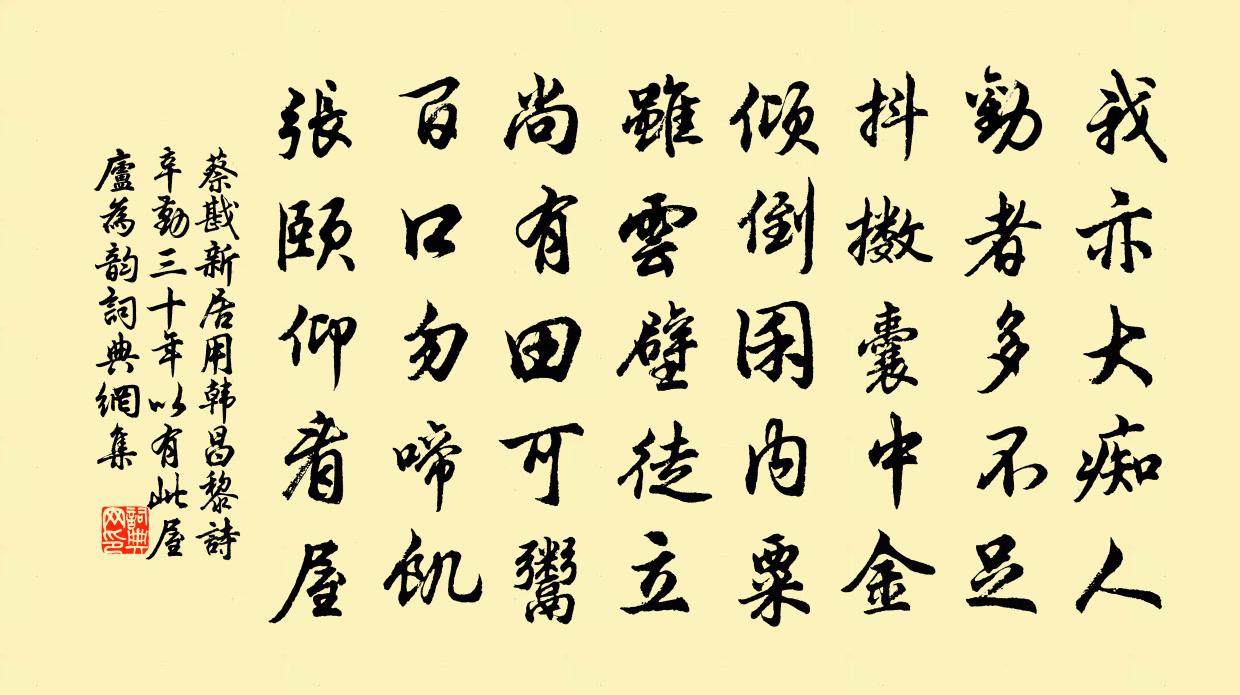 我亦大痴人
勸者多不足
抖擻囊中金
傾倒囷內粟
雖雲壁徒立
尚有田可鬻
百口勿啼飢
張頤仰看屋
蔡戡新居用韩昌黎詩
辛勤三十年以有此屋
廬為韵詞典網集
詞典
网印